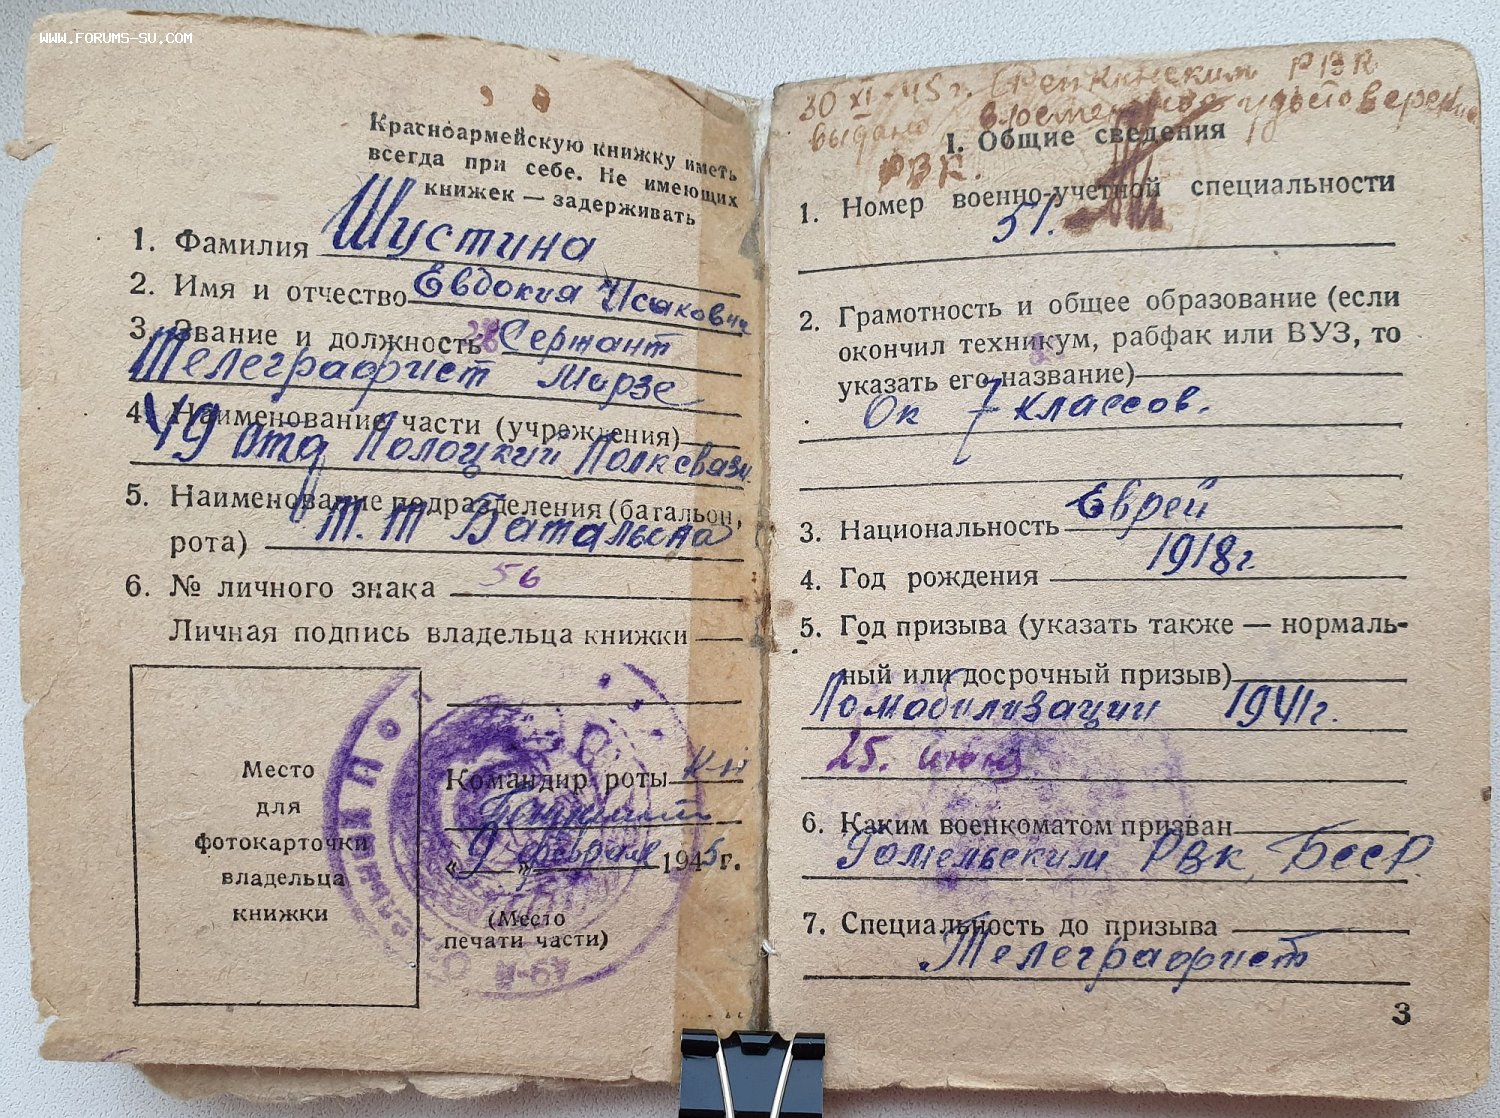 WWW.FORUMS-SU.COM
Красноармейскую книжку иметь
всегда при себе. Не имеющих
книжек — задерживать
1. Фамилия Шустина
2. Имя и отчество Евдокия Исаковн
3. Звание и должность Сержант
Телеграфист Морзе
4. Наименование части (учреждения)
49 отд Полоцкий Полк связи
5. Наименование подразделения (батальон,
рота) Т.Т Батальона
6. № личного знака 56
Личная подпись владельца книжки
Место
для
фотокарточки
владельца
книжки
Командир роты К-н
«9» февраля 1945 г.
(Место
печати части)
30 XI-45 г. РВК
выдано временное удостоверение
РВК.
I. Общие сведения
1. Номер военно-учетной специальности
51.
2. Грамотность и общее образование (если
окончил техникум, рабфак или ВУЗ, то
указать его название)
Ок 7 классов.
3. Национальность Еврей
4. Год рождения 1918г
5. Год призыва (указать также — нормаль-
ный или досрочный призыв)
По мобилизации 1941г.
25. июня
6. Каким военкоматом призван
Гомельским РВК БССР.
7. Специальность до призыва
Телеграфист
3